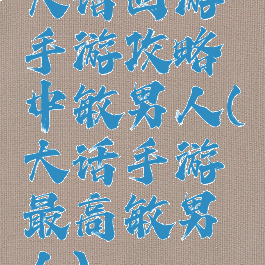 大话西游
手游攻略
中敏男人(
大话手游
最高敏男
人)